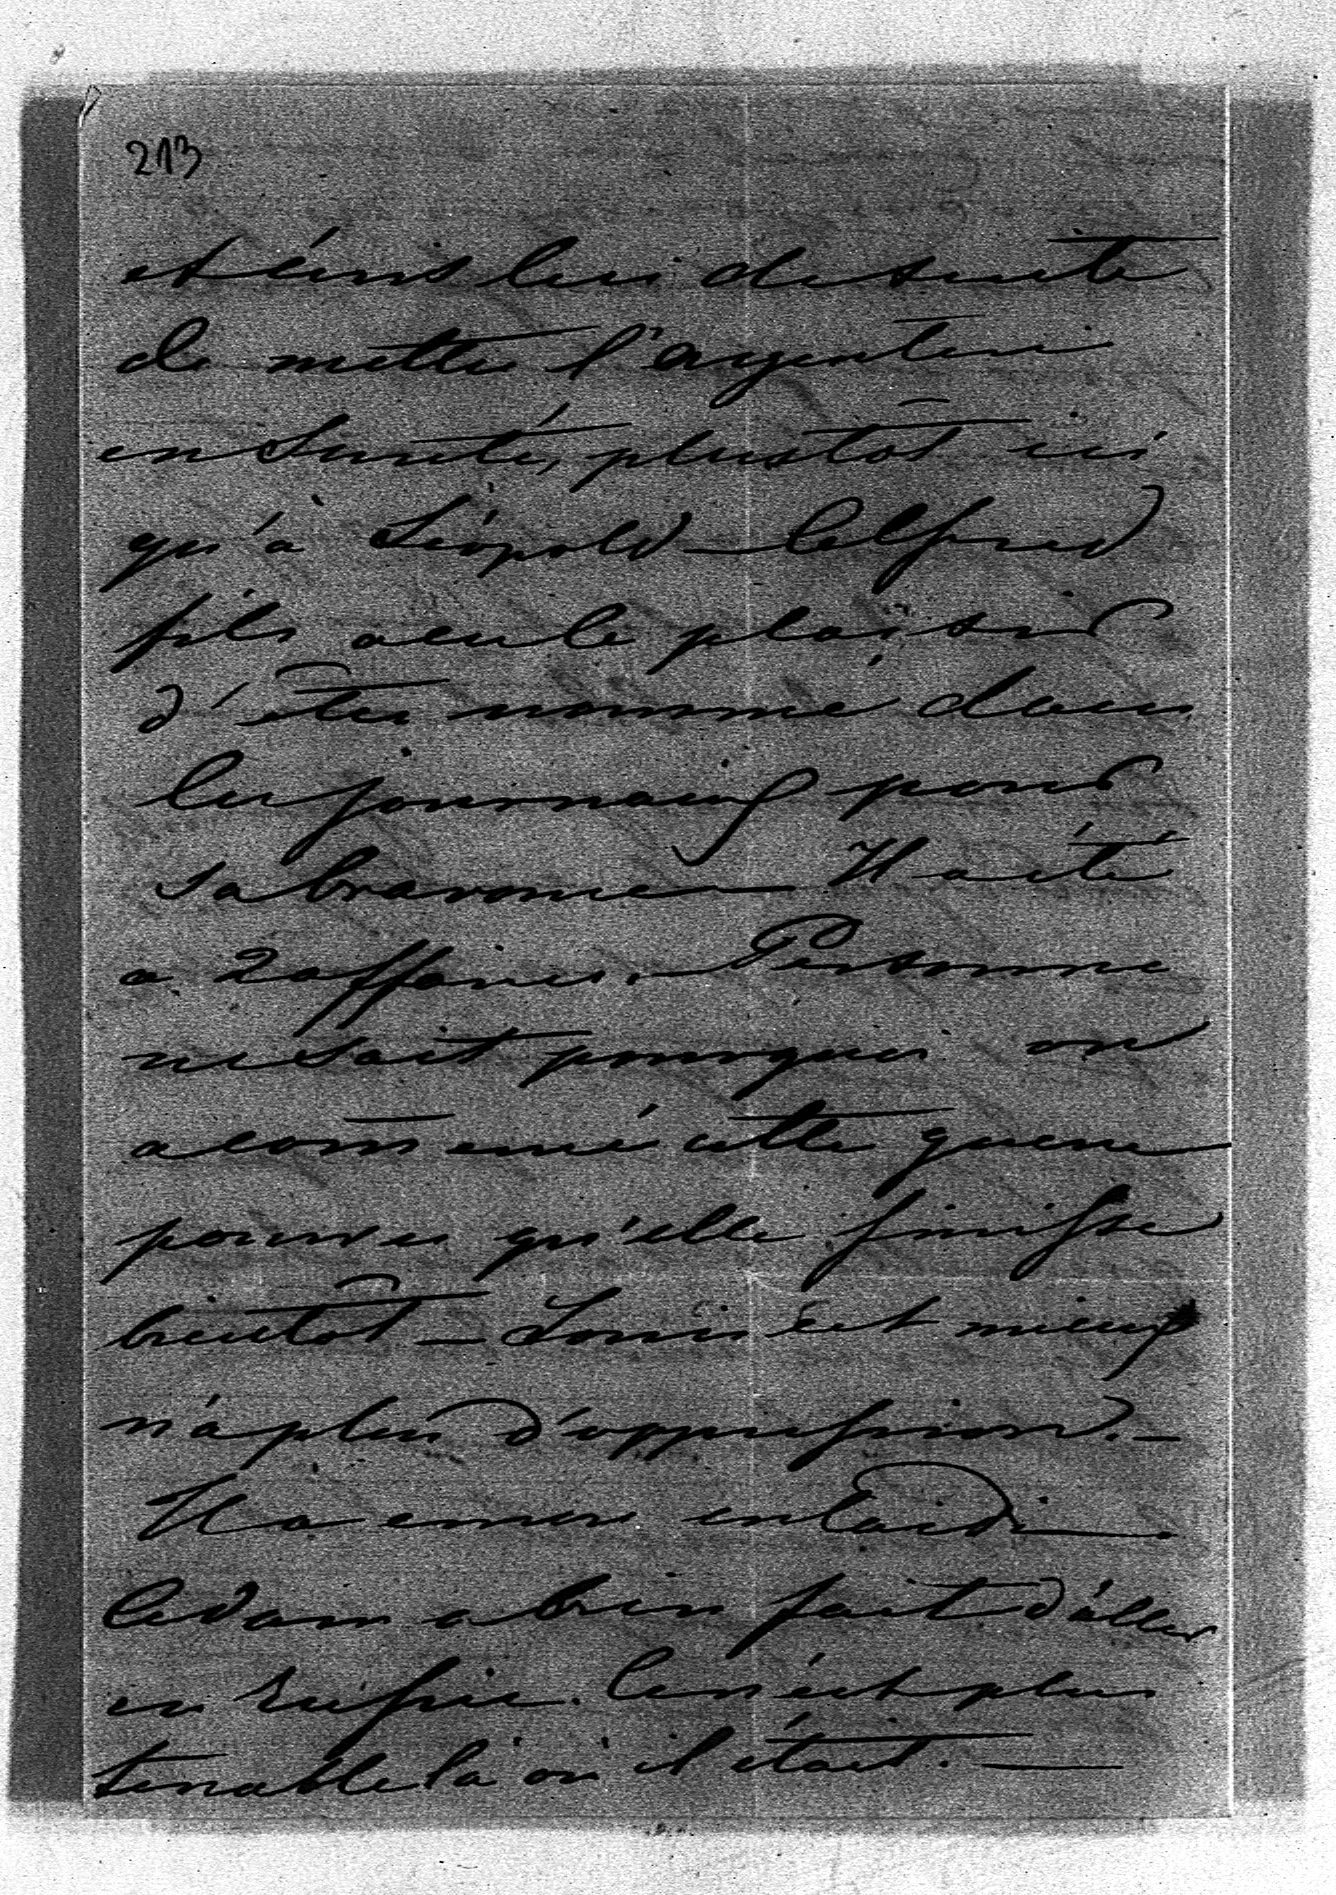 213
et écris lui de suite
de mettre l'argenterie
en sureté, plustôt ici
qu'à Léopold — Alfred
fils a eu le plaisir
d'être nommé dans
les journaux pour
sa bravoure — Il a été
a 2 affaires. — Personne
ne sait pourquoi on
a com̅encé cette guerre
pourvu qu'elle finisse
bientôt — Louis est mieux
n'a plus d'oppression. —
Il a encore enlaidi —.
Adam a bien fait d'aller
en Russie. Ce n'est plus
tenable là où il était. —